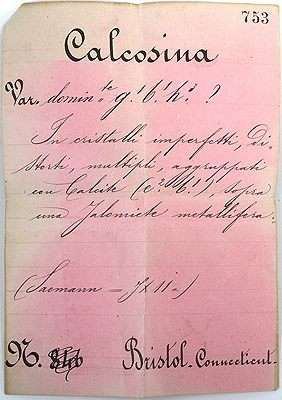 753
Calcosina
Var. domin.te g' b' h' ?
In cristalli imperfetti, Di
storti, multipli, aggruppati
con Calcite (e² b'), sopra
una Jalomicte metallifera.
(Saemann =
N. Bristol - Connecticut -